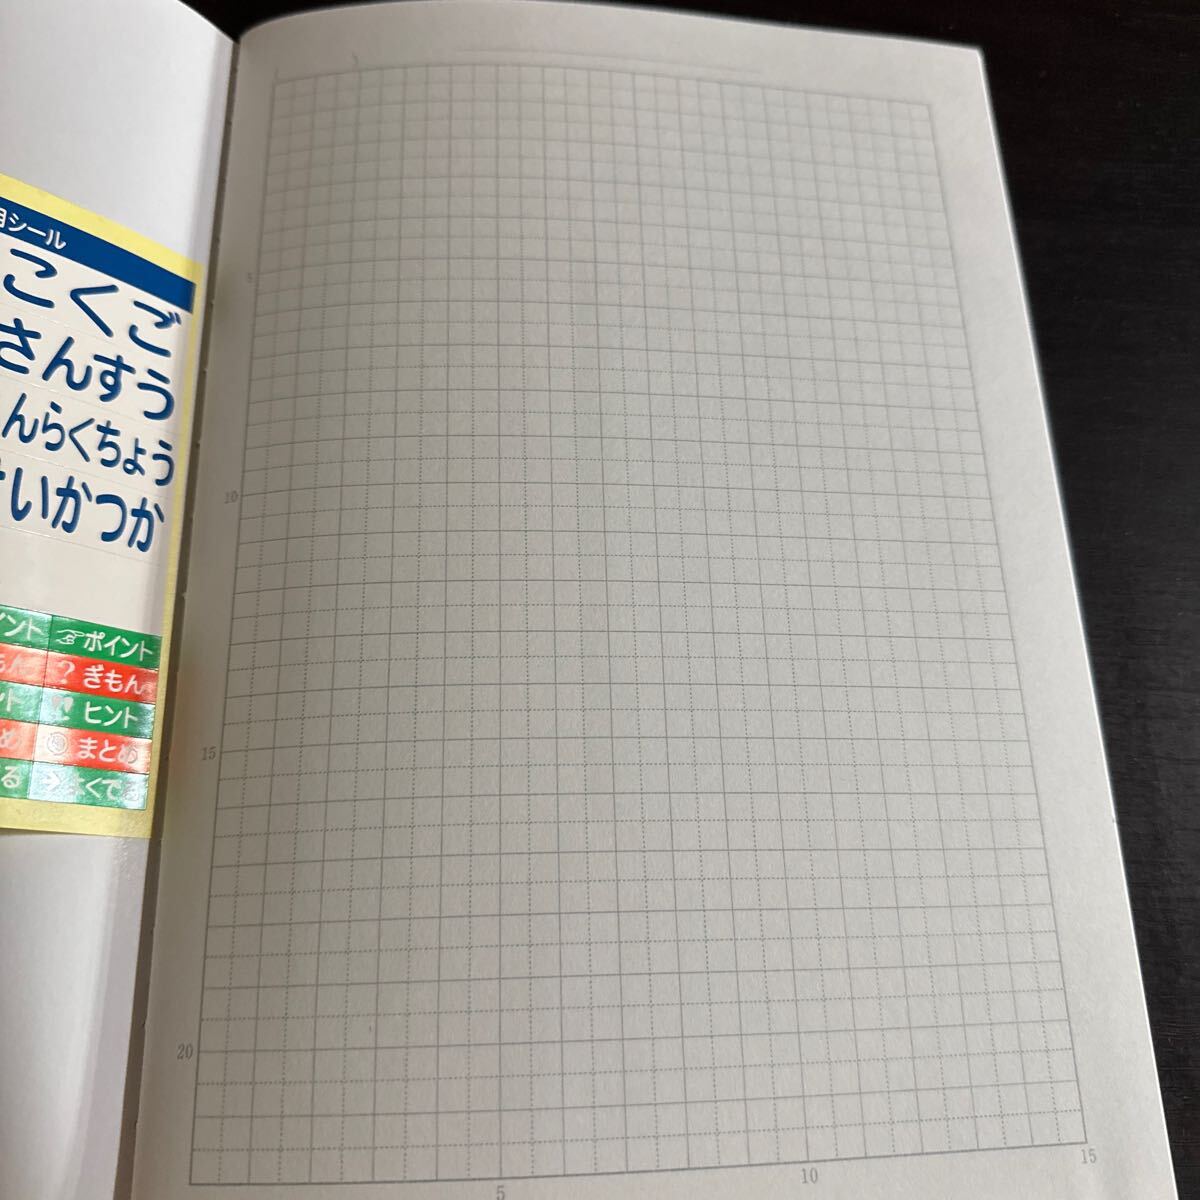 シール
こくご
さんすう
んらくちょう
いかつか
ント ポイント
? ぎもん
ント !! ヒント
め まとめ
る →
5
10
15
20
5
10
15